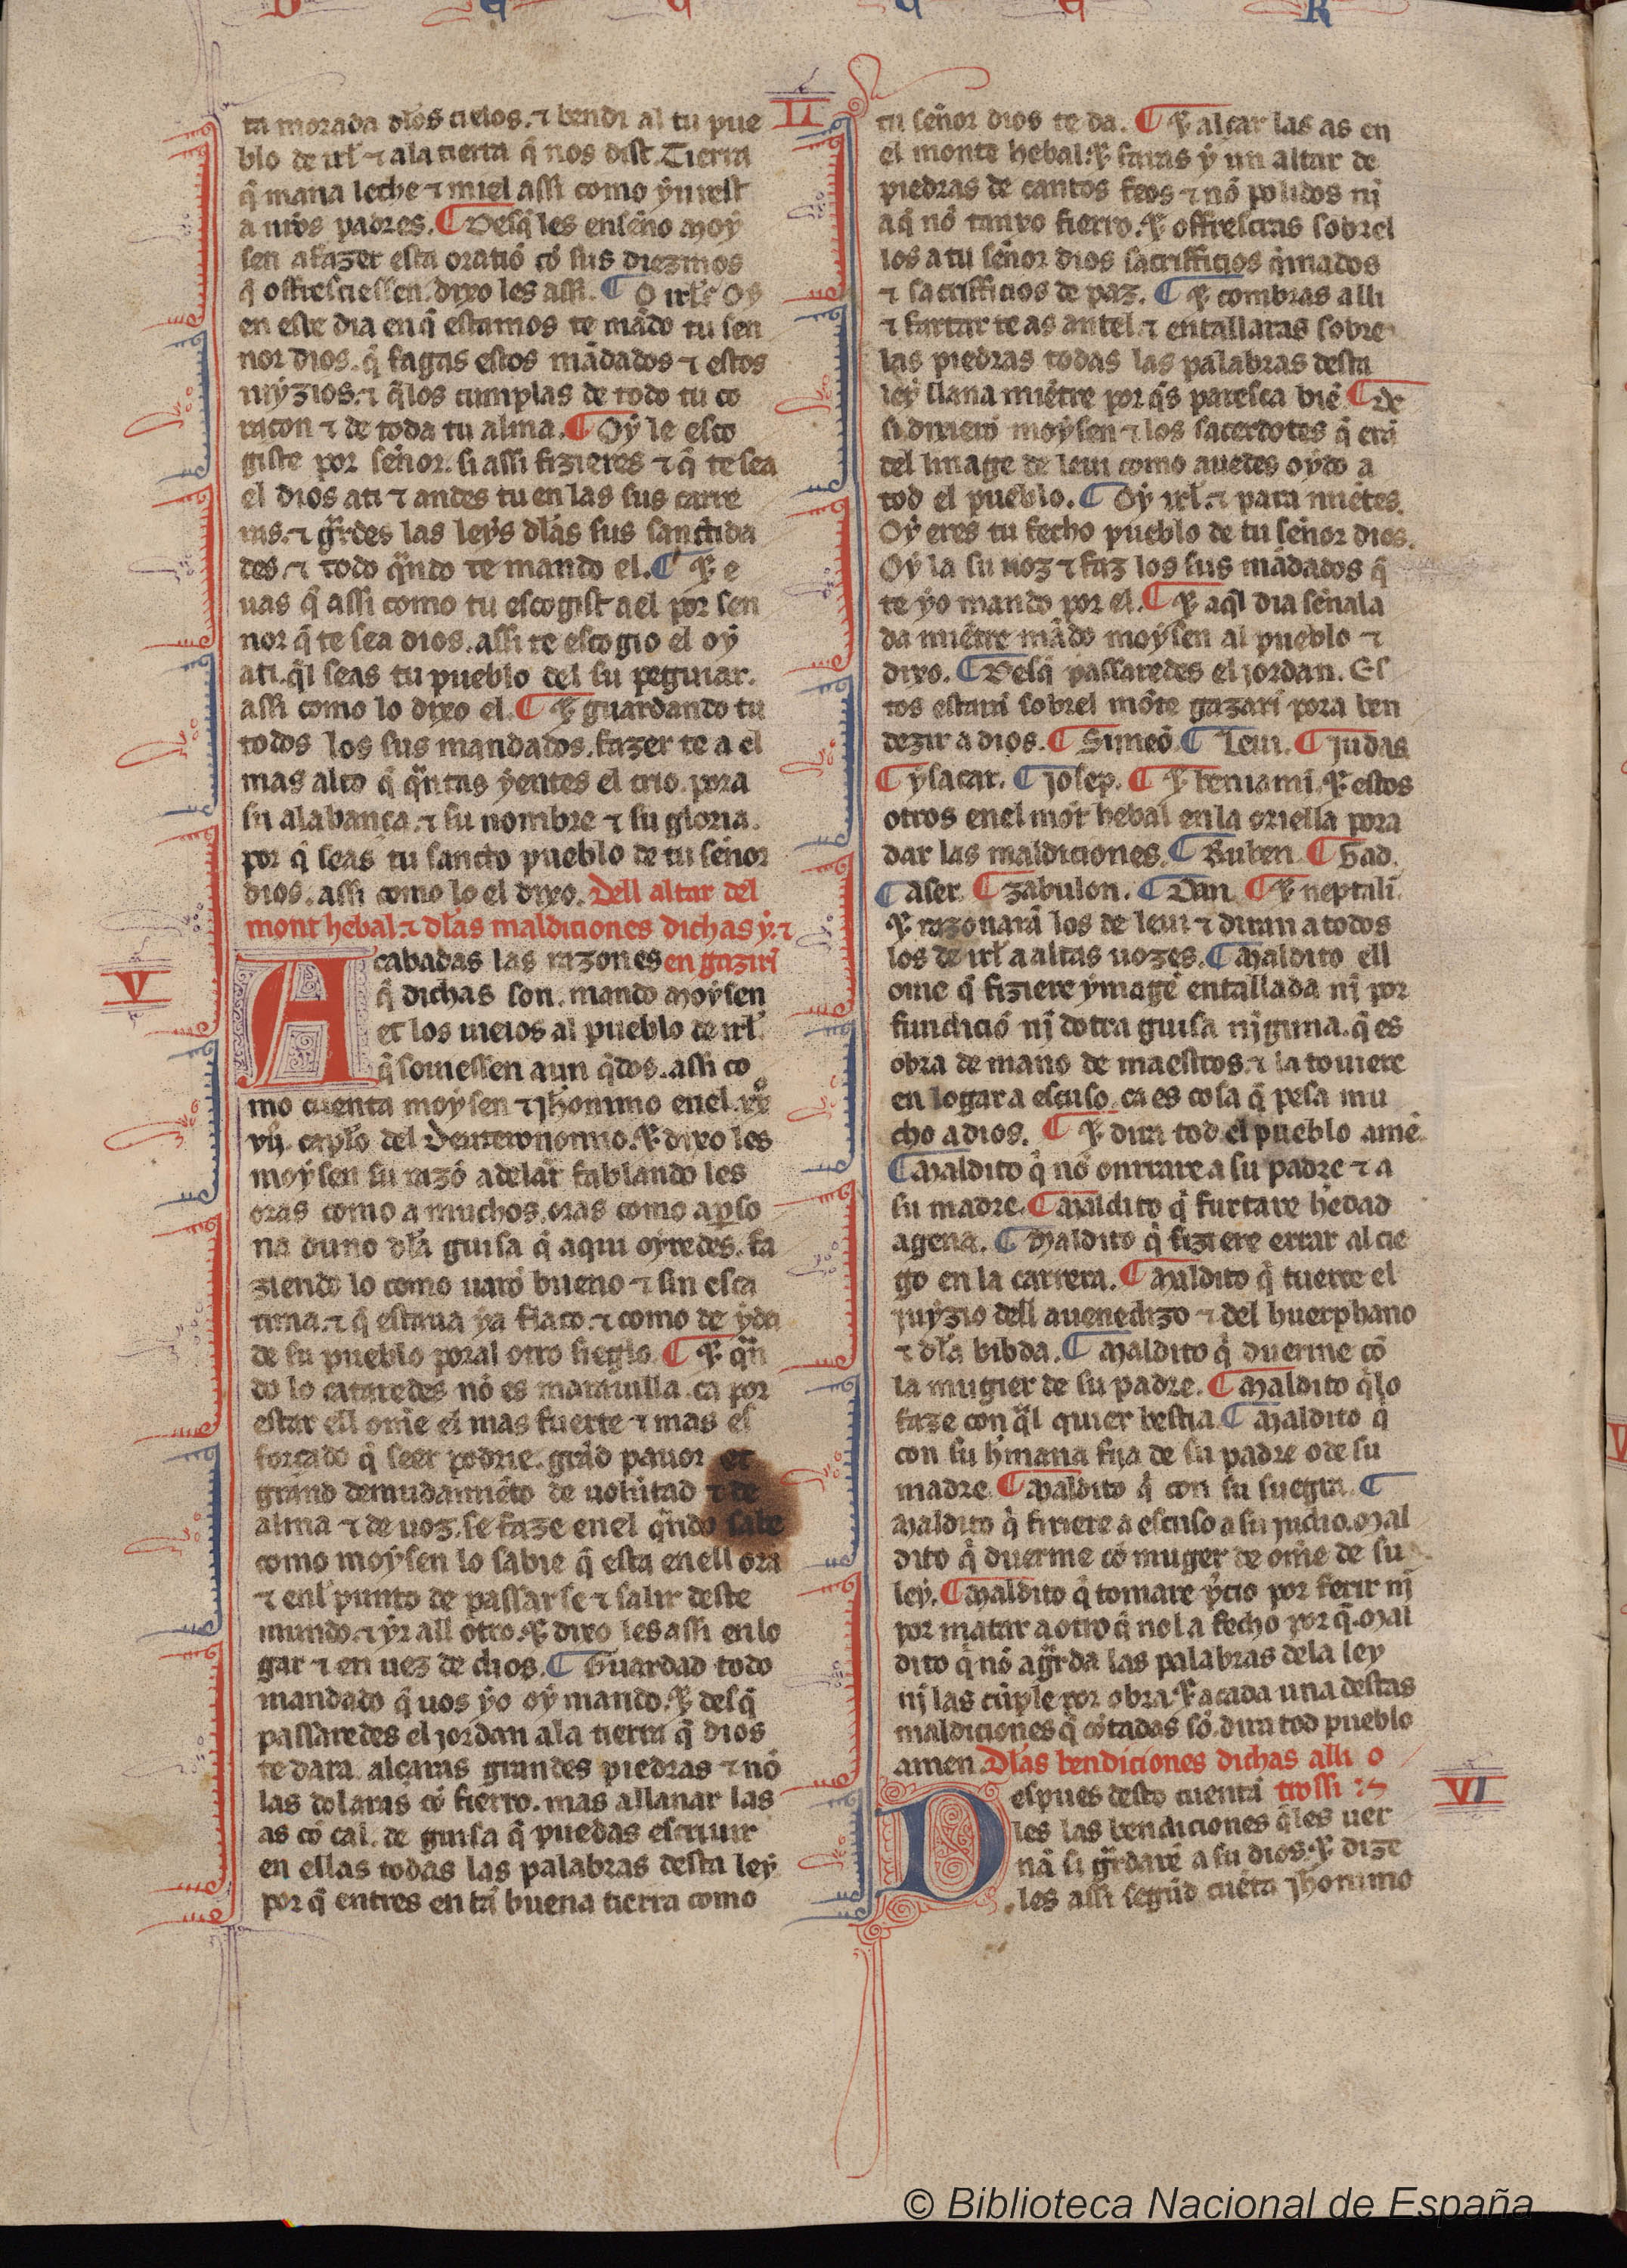 D E C C E R
II
ta morada dl̃os cielos. ⁊ bendi al tu pue
blo de irl̃ ⁊ ala tierra q̃ nos dist. Tierra
q̃ mana leche ⁊ miel assi como yurest
a nr̃os padres. ¶ Desq̃ les enseño moy
sen afazer esta oratiõ cõ sus diezmos
q̃ offresciessen. dixo les assi. ¶ O irl̃ Oy
en este dia en q̃ estamos te mãdo tu sen
nor dios. q̃ fagas estos mãdados ⁊ estos
iuyzios. ⁊ q̃ los cumplas de todo tu co
raçon ⁊ de toda tu alma. ¶ Oy le esco
giste por señor. si assi fizieres ⁊ q̃ te sea
el dios ati ⁊ andes tu en las sus carre
ras. ⁊ gr̃des las leys dl̃as sus sanctida
des. ⁊ todo qũdo te mando el. ¶ ⁊ e
uas q̃ assi como tu escogist a el por sen
nor q̃ te sea dios. assi te escogio el oy
ati. q̃l seas tu pueblo del su peguiar.
assi como lo dixo el. ¶ ⁊ guardando tu
todos los sus mandados. fazer te a el
mas alto q̃ qũtas yentes el crio. pora
su alabança. ⁊ su nombre ⁊ su gloria.
por q̃ seas tu sancto pueblo de tu señor
dios. assi como lo el dixo. Dell altar del
mont hebal. ⁊ dl̃as maldiciones dichas y. ⁊
V
Acabadas las razones en gazirĩ
q̃ dichas son. mando moysen
et los uieios al pueblo de irl̃
q̃ souiessen aun q̃dos. assi co
mo cuenta moysen ⁊ jheronimo en el. xxº
vijº. capl̃o del Deuteronomio. ⁊ dixo les
moysen su razõ adelãt fablando les
oras como a muchos. oras como a pso
na duno dl̃a guisa q̃ aqui oyredes. fa
ziendo lo como uarõ bueno ⁊ sin esca
tima. ⁊ q̃ estaua ya flaco. ⁊ como de yda
de su pueblo poral otro sieglo. ¶ ⁊ qũ
do lo cataredes nõ es marauilla. ca por
estar ell om̃e el mas fuerte ⁊ mas es
forçado q̃ seer podrie. grãd pauor et
grand demudamiẽto de uolũtad ⁊ de
alma ⁊ de uoz. se faze en el qũdo sabe
como moysen lo sabie q̃ esta en ell ora
⁊ enl̃ punto de passar se ⁊ salir deste
mundo. ⁊ yr all otro. ⁊ dixo les assi en lo
gar ⁊ en uez de dios. ¶ Guardad todo
mandado q̃ uos yo oy mando. ⁊ desq̃
passaredes el jordan ala tierra q̃ dios
te dara. alçaras grandes piedras ⁊ nõ
las dolaras cõ fierro. mas allanar las
as cõ cal. de guisa q̃ puedas escriuir
en ellas todas las palabras desta ley
por q̃ entres en tã buena tierra como
tu señor dios te da. ¶ ⁊ alçar las as en
el monte hebal. ⁊ faras y un altar de
piedras de cantos feos ⁊ nõ polidos nĩ
aq̃ nõ tanxo fierro. ⁊ offresciras sobrel
los a tu señor dios sacrifficios q̃mados
⁊ sacrifficios de paz. ¶ ⁊ combras alli
⁊ fartar te as antel. ⁊ entallaras sobre
las piedras todas las palabras desta
ley llana miẽtre por q̃s paresca biẽ. ¶ De
si dixierõ moysen ⁊ los sacerdotes q̃ erã
del linage de leui como auedes oydo a
tod el pueblo. ¶ Oy irl̃. ⁊ para miẽtes.
Oy eres tu fecho pueblo de tu señor dios.
Oy la su uoz ⁊ faz los sus mãdados q̃
te yo mando por el. ¶ ⁊ aq̃l dia señala
da miẽtre mãdo moysen al pueblo ⁊
dixo. ¶ Desq̃ passaredes el jordan. Es
tos estarã sobrel mõte gazarĩ pora ben
dezir a dios. ¶ Simeõ. ¶ Leui. ¶ Judas
¶ ysacar. ¶ Josep. ¶ ⁊ beniamĩ. ⁊ estos
otros en el mõt hebal en la oriella pora
dar las maldiciones. ¶ Ruben. ¶ Gad.
¶ Aser. ¶ Zabulon. ¶ Dan. ¶ ⁊ neptali.
⁊ razonarã los de leui ⁊ diran a todos
los de irl̃ a altas uozes. ¶ Maldito ell
ome q̃ fiziere ymagẽ entallada nĩ por
fundiciõ nĩ dotra guisa nĩguna. q̃ es
obra de mano de maestros. ⁊ la touiere
en logar a escuso. ca es cosa q̃ pesa mu
cho a dios. ¶ ⁊ dira tod el pueblo amẽ.
¶ Maldito q̃ nõ onrrare a su padre ⁊ a
su madre. ¶ Maldito q̃ furtare hedad
agena. ¶ Maldito q̃ fiziere errar al cie
go en la carrera. ¶ Maldito q̃ tuerce el
juyzio dell auenedizo ⁊ del huerphano
⁊ dl̃a bibda. ¶ Maldito q̃ duerme cõ
la mugier de su padre. ¶ Maldito q̃lo
faze con q̃l quier bestia. ¶ Maldito q̃
con su hr̃mana fija de su padre o de su
madre. ¶ Maldito q̃ con su suegra. ¶
Maldito q̃ firiere a escuso a su judio. Mal
dito q̃ duerme cõ muger de om̃e de su
ley. ¶ Maldito q̃ tomare p̃cio por ferir nĩ
por matar a otro q̃ nol a fecho por q̃. Mal
dito q̃ nõ agr̃da las palabras dela ley
nĩ las cũple por obra. ⁊ a cada una destas
maldiciones q̃ cõtadas sõ. dira tod pueblo
amen. Dl̃as bendiciones dichas alli o
VI
Despues desto cuentã trossi :~
les las bendiciones q̃ les uer
nã si gr̃darẽ a su dios. ⁊ dize
les assi segũd cuẽta jheronimo
© Biblioteca Nacional de España